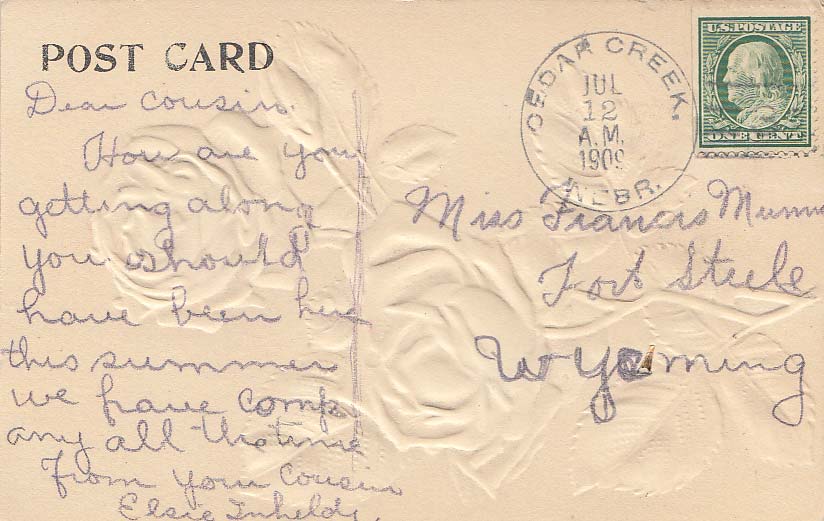 POST CARD
CEDAR CREEK.
JUL
12
A.M.
1909
NEBR.
U.S. POSTAGE
ONE CENT
Dear Cousin.
How are you
getting along
you should
have been here
this summer
we have comp
any all the time
From your Cousin
Elsie
Miss Francis
Fort Steele
Wyoming